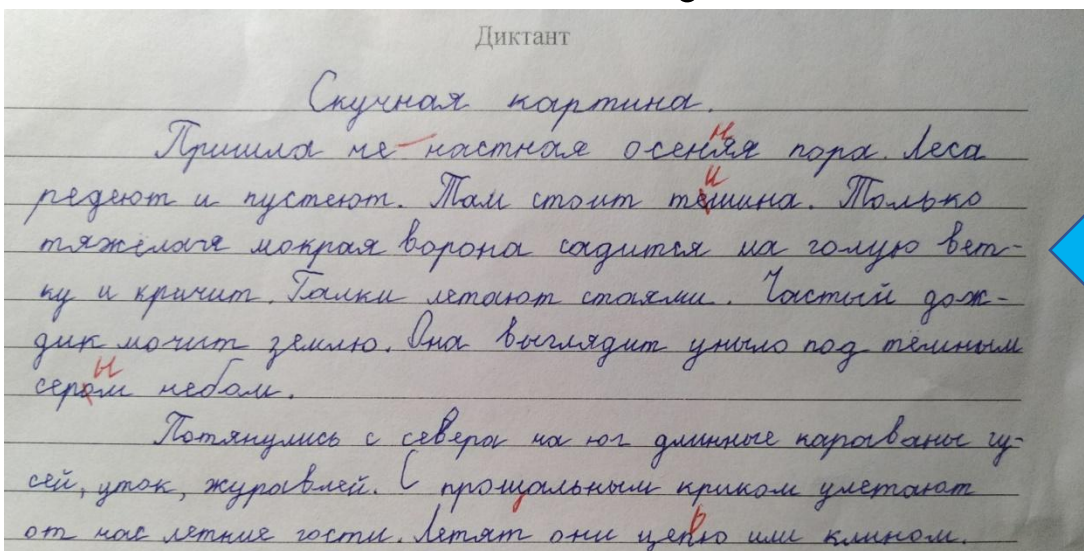 Диктант
Скучная картина.
Пришла не настная осеняя пора. Леса
редеют и пустеют. Там стоит тешина. Только
тяжёлая мокрая ворона садится на голую вет-
ку и кричит. Галки летают стаями. Частый дож-
дик мочит землю. Она выглядит уныло под тёмным
сером небом.
Потянулись с севера на юг длинные караваны гу-
сей, уток, журавлей. С прощальным криком улетают
от нас летние гости. Летят они цепю или клином.